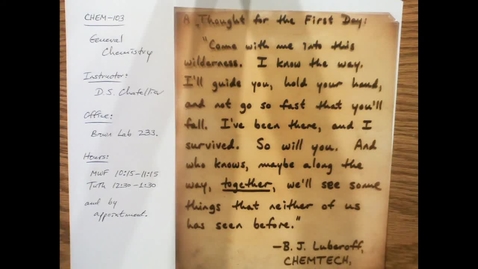 CHEM-103
General
Chemistry
Instructor:
D.S. Chatellier
Office:
Brown Lab 233
Hours:
MWF 10:15-11:15
TuTh 12:30-1:30
and by
appointment.
A Thought for the First Day:
"Come with me into this
wilderness. I know the way.
I'll guide you, hold your hand,
and not go so fast that you'll
fall. I've been there, and I
survived. So will you. And
who knows, maybe along the
way, together, we'll see some
things that neither of us
has seen before."
—B. J. Luberoff,
CHEMTECH,